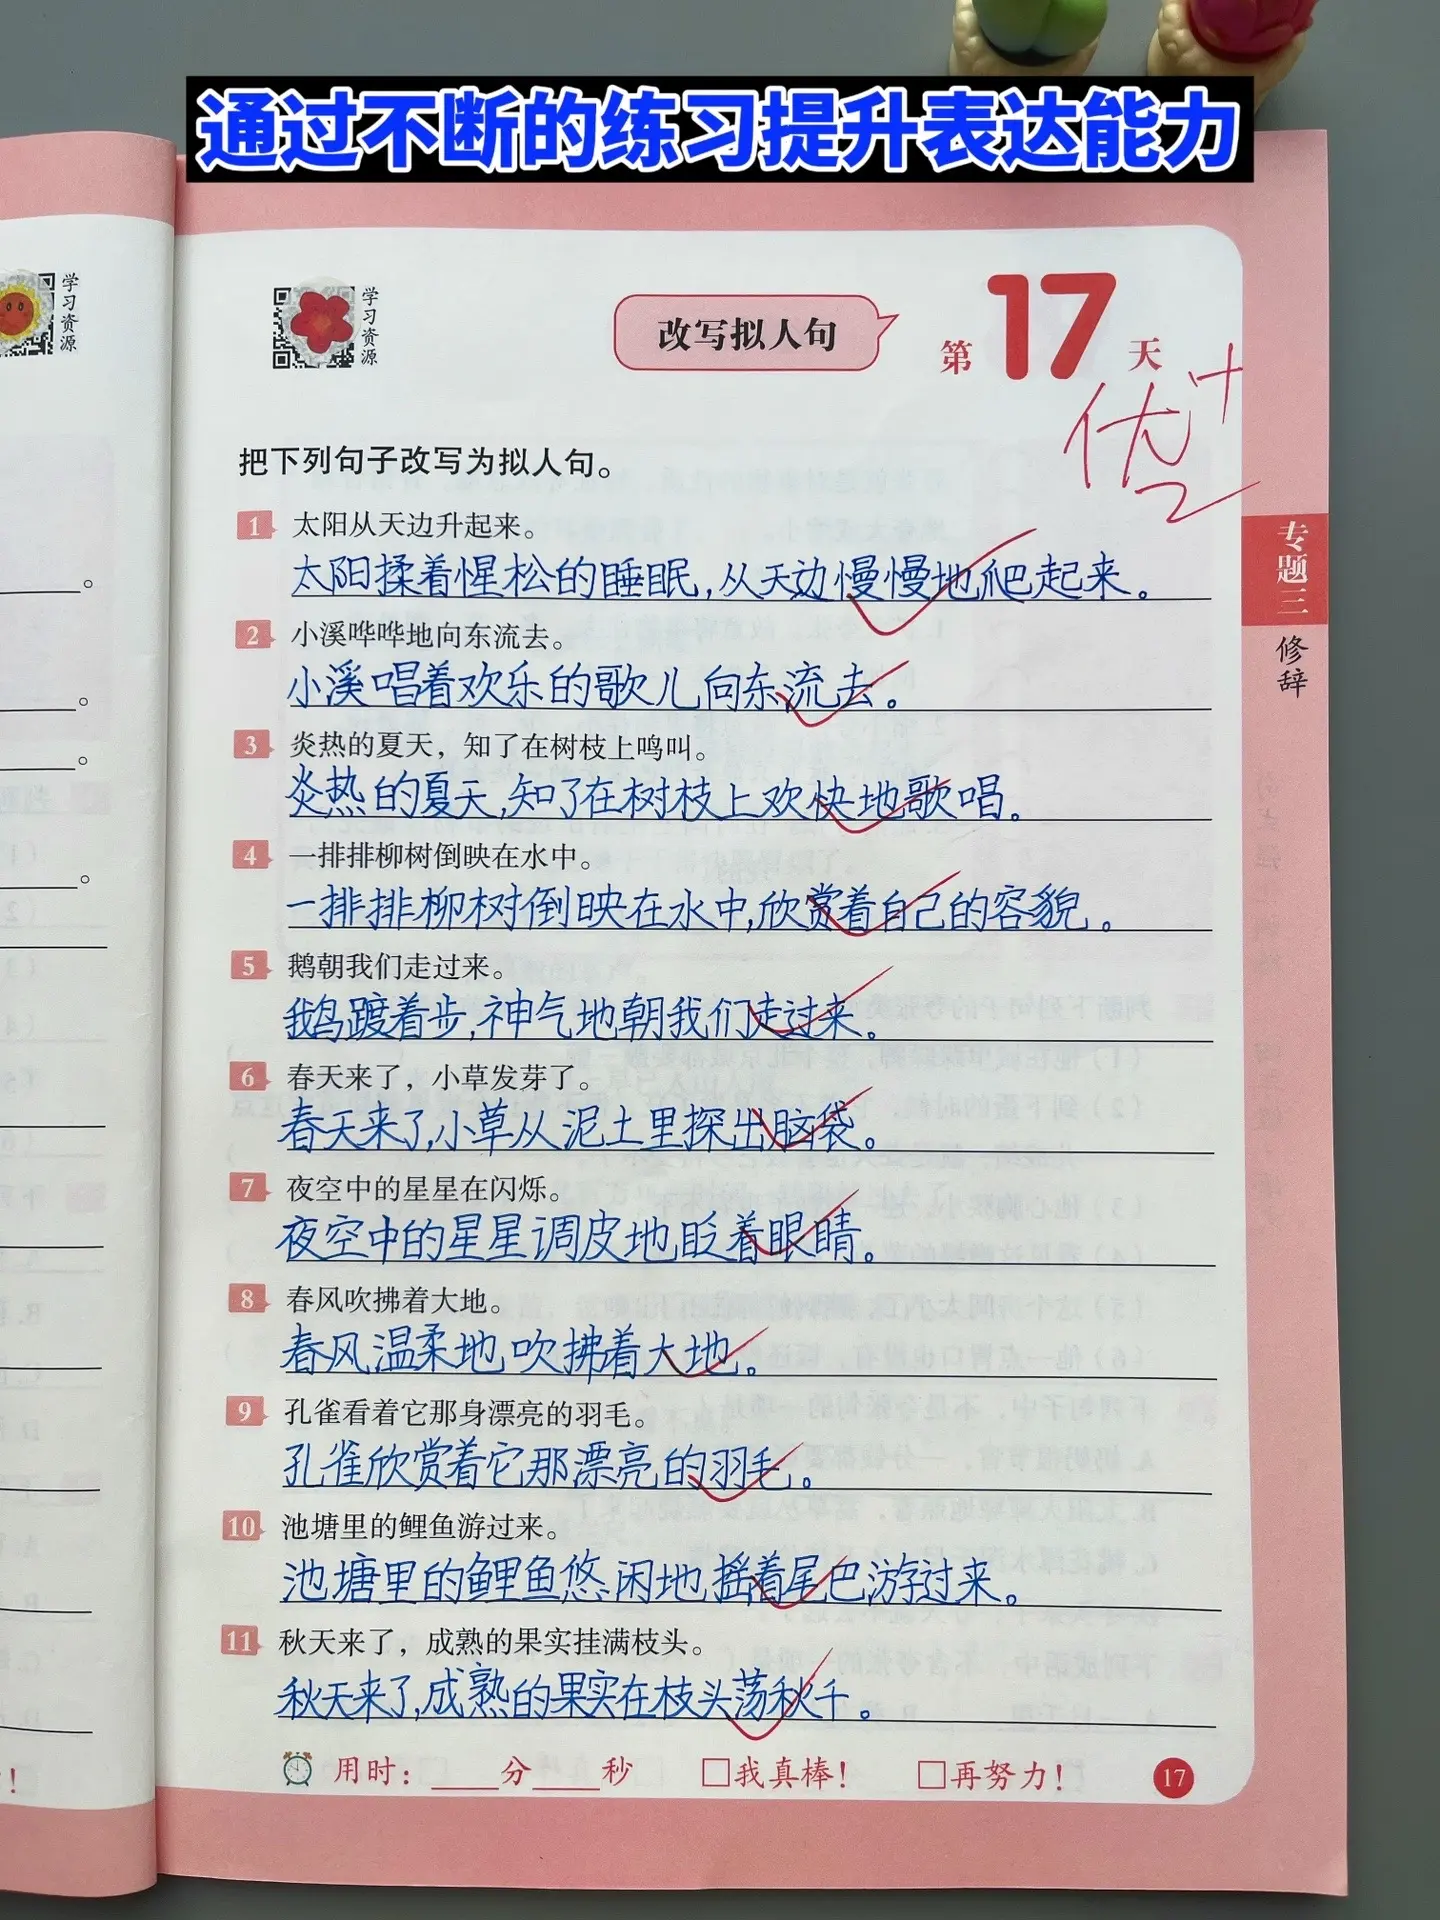 通过不断的练习提升表达能力
学习资源
学习资源
改写拟人句
第17天
优+
把下列句子改写为拟人句。
1 太阳从天边升起来。
太阳揉着惺松的睡眠,从天边慢慢地爬起来。
2 小溪哗哗地向东流去。
小溪唱着欢乐的歌儿向东流去。
3 炎热的夏天，知了在树枝上鸣叫。
炎热的夏天,知了在树枝上欢快地歌唱。
4 一排排柳树倒映在水中。
一排排柳树倒映在水中,欣赏着自己的容貌。
5 鹅朝我们走过来。
鹅踱着步,神气地朝我们走过来。
6 春天来了，小草发芽了。
春天来了,小草从泥土里探出脑袋。
7 夜空中的星星在闪烁。
夜空中的星星调皮地眨着眼睛。
8 春风吹拂着大地。
春风温柔地吹拂着大地。
9 孔雀看着它那身漂亮的羽毛。
孔雀欣赏着它那漂亮的羽毛。
10 池塘里的鲤鱼游过来。
池塘里的鲤鱼悠闲地摇着尾巴游过来。
11 秋天来了，成熟的果实挂满枝头。
秋天来了,成熟的果实在枝头荡秋千。
用时：____分____秒 □我真棒！ □再努力！
17
专题三
修辞